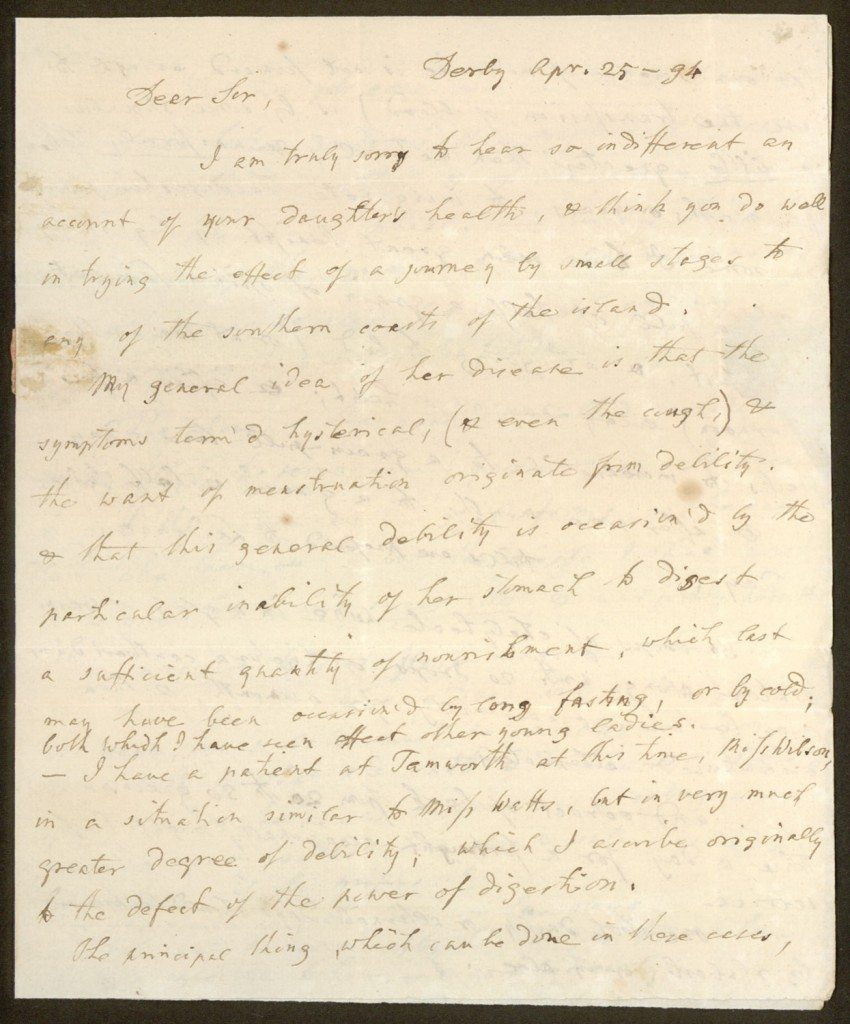 Derby Apr. 25 - 94
Dear Sir,
I am truly sorry to hear so indifferent an
account of your daughter's health, & think you do well
in trying the effect of a journey by small stages to
any of the southern coasts of the island.
My general idea of her disease is that the
symptoms term'd hysterical, (& even the cough,) &
the want of menstruation originate from debility.
& that this general debility is occasion'd by the
particular inability of her stomach to digest
a sufficient quantity of nourishment, which last
may have been occasion'd by long fasting, or by cold;
both which I have seen effect other young ladies.
— I have a patient at Tamworth at this time, Miss Wilson,
in a situation similar to Miss Watts, but in very much
greater degree of debility; which I ascribe originally
to the defect of the power of digestion.
The principal thing, which can be done in these cases,